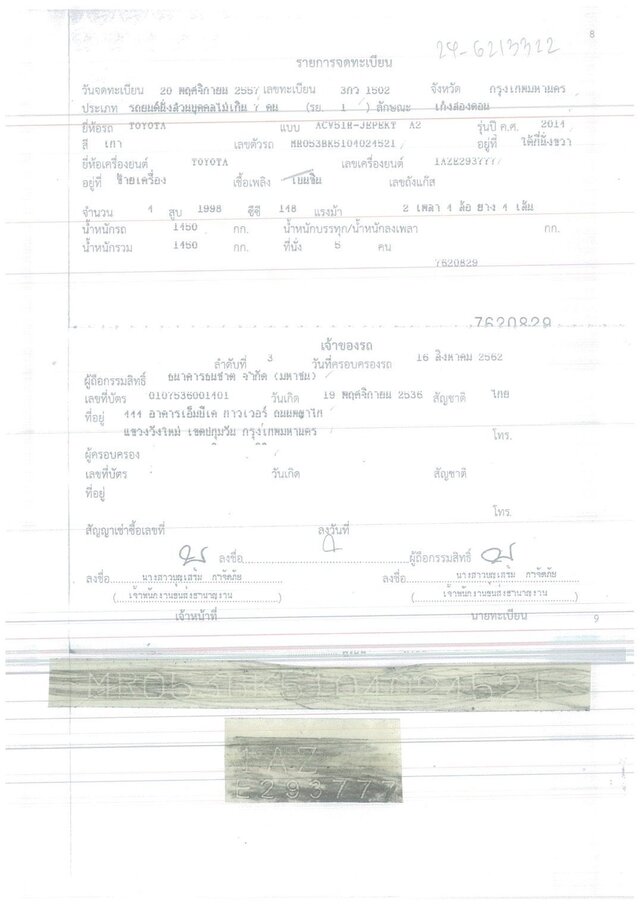 8
24-6213322
รายการจดทะเบียน
วันจดทะเบียน 20 พฤศจิกายน 2557 เลขทะเบียน 3กว 1502 จังหวัด กรุงเทพมหานคร
ประเภท รถยนต์นั่งส่วนบุคคลไม่เกิน 7 คน (รย. 1 ) ลักษณะ เก๋งสองตอน
ยี่ห้อรถ TOYOTA แบบ ACV51R-JEPEKT A2 รุ่นปี ค.ศ. 2014
สี เทา เลขตัวรถ MR053BK5104024521 อยู่ที่ ใต้ที่นั่งขวา
ยี่ห้อเครื่องยนต์ TOYOTA เลขเครื่องยนต์ 1AZE293777
อยู่ที่ ซ้ายเครื่อง เชื้อเพลิง เบนซิน เลขถังแก๊ส
จำนวน 4 สูบ 1998 ซีซี 148 แรงม้า 2 เพลา 4 ล้อ ยาง 4 เส้น
น้ำหนักรถ 1450 กก. น้ำหนักบรรทุก/น้ำหนักลงเพลา กก.
น้ำหนักรวม 1450 กก. ที่นั่ง 5 คน
7620829
7620829
เจ้าของรถ
ลำดับที่ 3 วันที่ครอบครองรถ 16 สิงหาคม 2562
ผู้ถือกรรมสิทธิ์ ธนาคารธนชาต จำกัด (มหาชน)
เลขที่บัตร 0107536001401 วันเกิด 19 พฤศจิกายน 2536 สัญชาติ ไทย
ที่อยู่ 444 อาคารเอ็มบีเค ทาวเวอร์ ถนนพญาไท
แขวงวังใหม่ เขตปทุมวัน กรุงเทพมหานคร โทร.
ผู้ครอบครอง
เลขที่บัตร วันเกิด สัญชาติ
ที่อยู่
โทร.
สัญญาเช่าซื้อเลขที่ ลงวันที่
ลงชื่อ ผู้ถือกรรมสิทธิ์
ลงชื่อ นางสาวบุญเสริม ลงชื่อ นางสาวบุญเสริม
( เจ้าพนักงานขนส่งชำนาญงาน ) ( เจ้าพนักงานขนส่งชำนาญงาน )
เจ้าหน้าที่ นายทะเบียน 9
MR053BK5104024521
1AZ
E293777